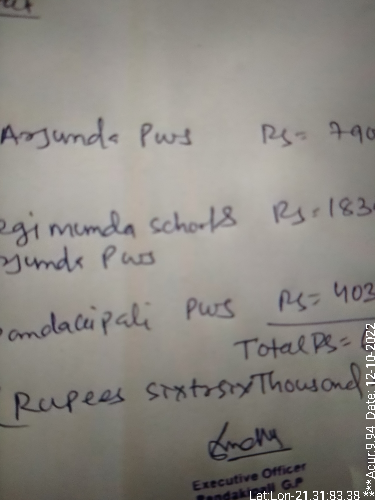 Arjunda PWS Rs= 790
egimunda schools Rs=183
rjunda PWS
andakipali PWS Rs= 403
Total Rs=
(Rupees sixtysix Thousand
Executive Officer
Bandakipali G.P
Lat,Lon-21.31,83.38 ***Acur:9.94 Date: 12-10-2022